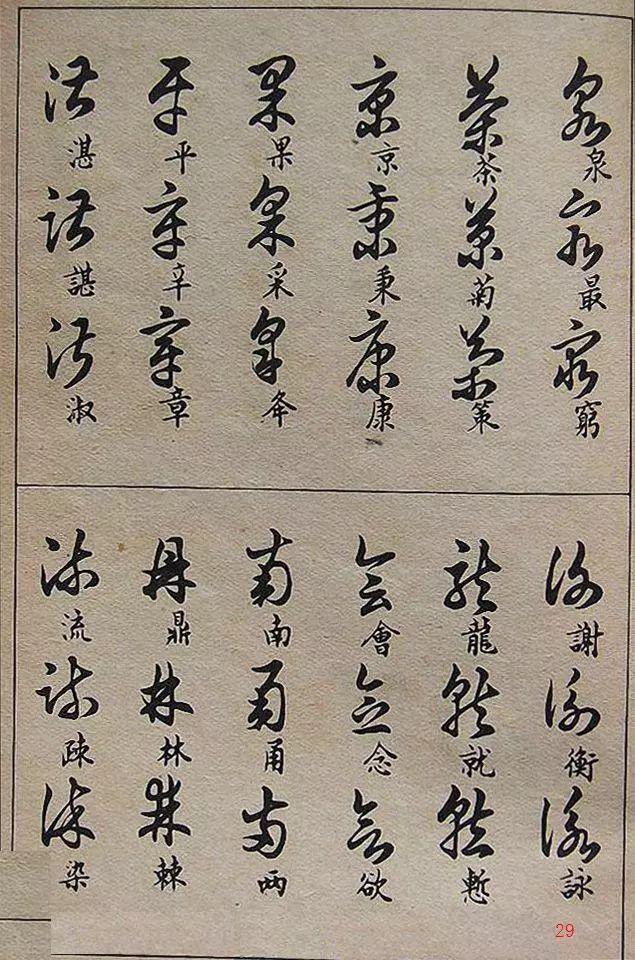 泉 最 窮
茶 菊 策
京 秉 康
果 采
平 辛 章
湛 諶 淑
謝 衡 詠
龍 就 慙
會 念 欲
南 甬 两
鼎 林 棘
流 疎 染
29